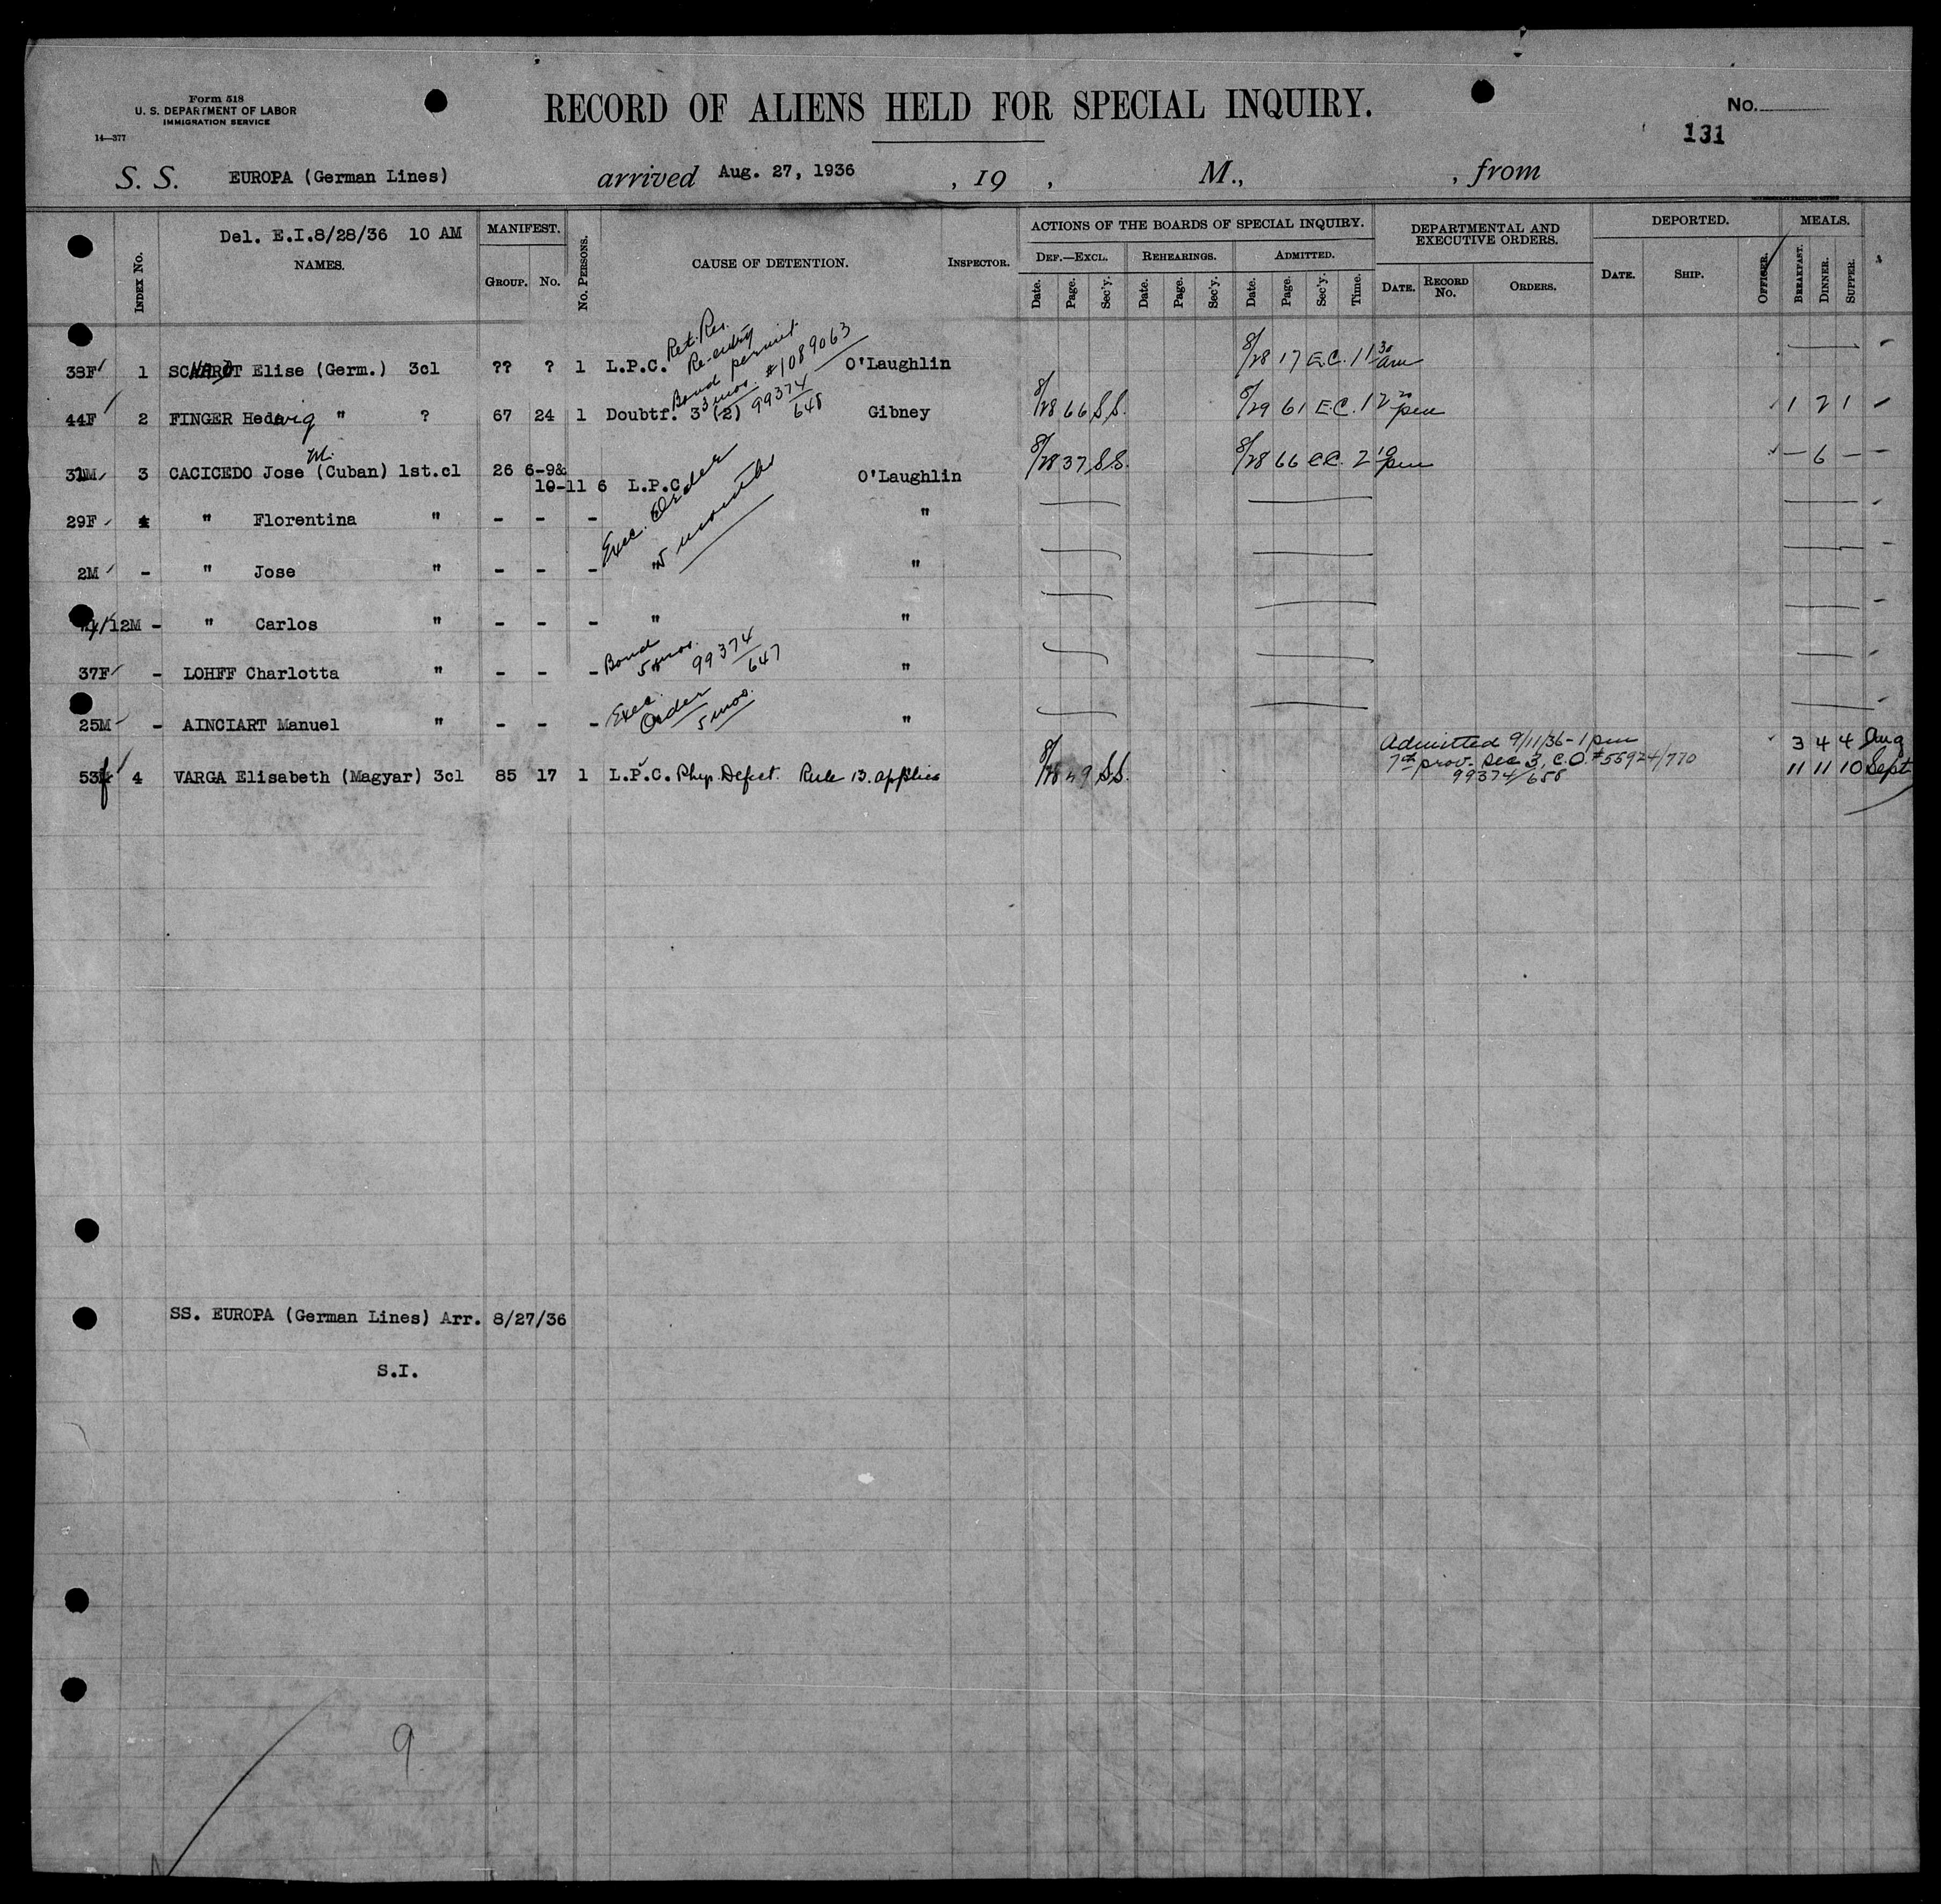 Form 518
U. S. DEPARTMENT OF LABOR
IMMIGRATION SERVICE
14—377
RECORD OF ALIENS HELD FOR SPECIAL INQUIRY.
No.
131
S. S. EUROPA (German Lines) arrived Aug. 27, 1936 , 19 , M., , from
Del. E.I.8/28/36 10 AM
INDEX No.
NAMES.
MANIFEST.
GROUP. No.
No. PERSONS.
CAUSE OF DETENTION.
INSPECTOR.
ACTIONS OF THE BOARDS OF SPECIAL INQUIRY.
DEF.—EXCL. REHEARINGS. ADMITTED.
Date. Page. Sec'y. Date. Page. Sec'y. Date. Page. Sec'y. Time.
DEPARTMENTAL AND
EXECUTIVE ORDERS.
DATE. RECORD No. ORDERS.
DEPORTED.
DATE. SHIP. OFFICER.
MEALS.
BREAKFAST. DINNER. SUPPER.
Ret. Res.
Re-entry
permit
#1089063
38F 1 Elise (Germ.) 3cl ?? ? 1 L.P.C. O'Laughlin 8/28 17 E.C. 11 30 am
Bond
3 mos. 99374
648
44F 2 FINGER Hedwig " ? 67 24 1 Doubtf. 3 (2) Gibney 8/28 66 S.S. 8/29 61 E.C. 12 20 pm 1 2 1
M.
3 CACICEDO Jose (Cuban) 1st.cl 26 6-9& O'Laughlin 8/28 37 S.S. 8/28 66 E.C. 2 10 pm — 6 —
10-11 6 L.P.C.
Exec. Order
5 months
29F " Florentina " - - - "
2M - " Jose " - - - " "
/12M - " Carlos " - - - " "
Bond
5 mos. 99374
647
37F - LOHFF Charlotta " - - - "
Exec.
Order
5 mos.
25M - AINCIART Manuel " - - - "
Admitted 9/11/36 - 1 pm 3 4 4 Aug
7th prov. Sec 3, C.O. #55924/770
99374/658
53f 4 VARGA Elisabeth (Magyar) 3cl 85 17 1 L.P.C. Phys. Defect. Rule 13. applies 8/28 49 S.S. 11 11 10 Sept
SS. EUROPA (German Lines) Arr. 8/27/36
S.I.
9